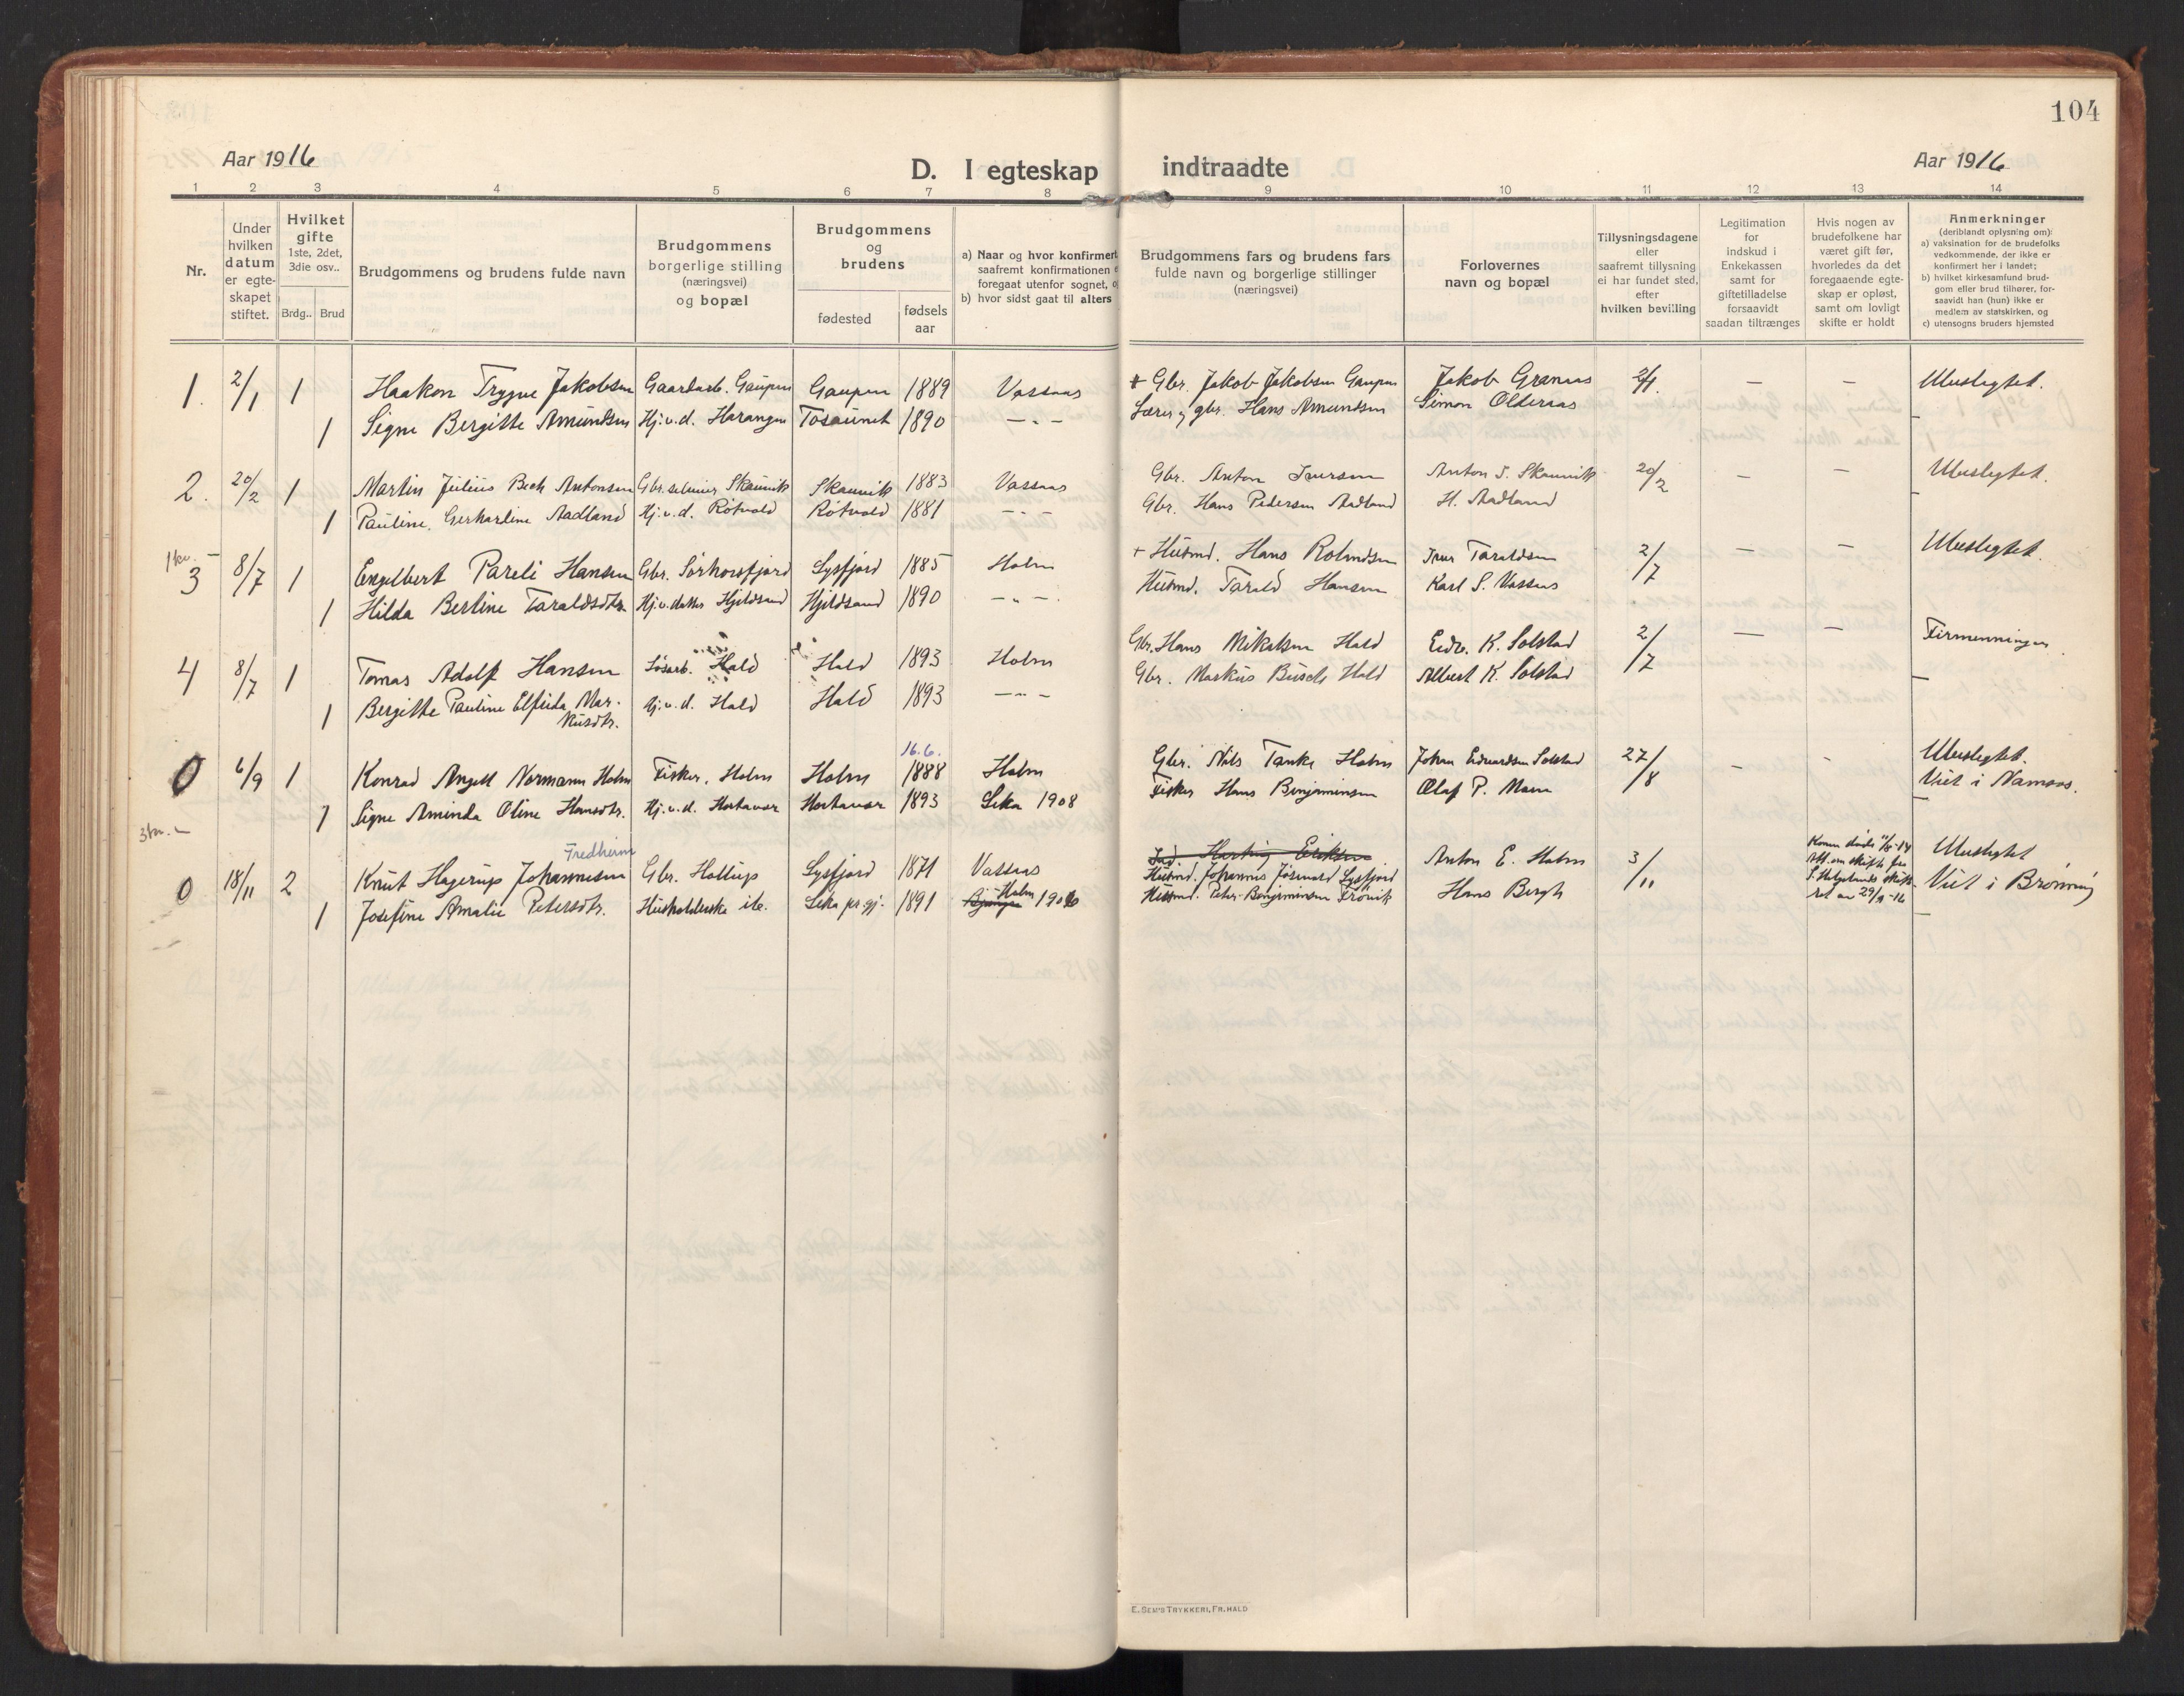 104
Aar 1916
D. I egteskap indtraadte
Aar 1916
1 2 3 4 5 6 7 8 9 10 11 12 13 14
Nr.
Under hvilken datum er egteskapet stiftet.
Hvilket gifte 1ste, 2det, 3die osv..
Brdg.. Brud
Brudgommens og brudens fulde navn
Brudgommens borgerlige stilling (næringsvei) og bopæl
Brudgommens og brudens
fødested
fødsels aar
a) Naar og hvor konfirmert
saafremt konfirmationen
foregaat utenfor sognet,
b) hvor sidst gaat til alters
Brudgommens fars og brudens fars
fulde navn og borgerlige stillinger
(næringsvei)
Forlovernes
navn og bopæl
Tillysningsdagene
eller
saafremt tillysning
ei har fundet sted,
efter
hvilken bevilling
Legitimation
for
indskud i
Enkekassen
samt for
giftetilladelse
forsaavidt
saadan tiltrænges
Hvis nogen av
brudefolkene har
været gift før,
hvorledes da det
foregaaende egte-
skap er opløst,
samt om lovligt
skifte er holdt
Anmerkninger
(deriblandt oplysning om):
a) vaksination for de brudefolks
vedkommende, der ikke er
konfirmert her i landet;
b) hvilket kirkesamfund brud-
gom eller brud tilhører, for-
saavidt han (hun) ikke er
medlem av statskirken, og
c) utensogns bruders hjemsted
1. 2/1 1 Haakon Trygve Jakobsen Gaardarb. Gaupen Gaupen 1889 Vassaas + Gbr. Jakob Jakobsen Gaupen Jakob Granaas 2/1. — — Ubeslegtet.
1 Signe Bergitte Amundsen Hj.v.d. Harangen Tosaunet 1890 — „ — Lærer og gbr. Hans Amundsen Simon Olderaas
2. 20/2 1 Martin Julius Bech Antonsen Gbr. Skaunvik Skaunvik 1883 Vassaas Gbr. Anton Iversen Anton I. Skaunvik 20/2 — — Ubeslegtet.
1 Pauline Gerhardine Aadland Hj.v.d. Rötvold Rötvold 1881 — „ — Gbr. Hans Pedersen Aadland H. Aadland
3 8/7 1 Engelbert Pareli Hansen Gbr. Sörhorsfjord Lysfjord 1885 Holm + Husmd. Hans Iver Taraldsen 2/7 — — Ubeslegtet.
1 Hilda Berline Taraldsdtr. Hj.v. datter Hjeldsand Hjeldsand 1890 — „ — Husmd. Tarald Hansen Karl S. Vassaas
4 8/7 1 Tomas Adolf Hansen Løsarb. Hald Hald 1893 Holm Gbr. Hans Mikalsen Hald K. Solstad 2/7 — — Firmenninger.
1 Bergitte Pauline Elfrida Mar- Hj.v.d. Hald Hald 1893 — „ — Gbr. Markus Busch Hald Albert K. Solstad
kusdtr.
16.6.
0 6/9 1 Konrad Angell Normann Holm Fisker, Holm Holm 1888 Holm Gbr. Nils Tanke Holm Johan Edvardsen Solstad 27/8 - - Ubeslegtet.
Viet i Namsos.
1 Signe Aminda Oline Hansdtr. Hj.v.d. Hortavær Hortavær 1893 Leka 1908 Fisker Hans Benjaminsen Olaf P. Moen
Fredheim
0 18/11 2 Knut Hagerup Johannesen Gbr. Lysfjord 1871 Vassaas Husmd. Johannes Lysfjord Anton E. Holm 3/11 - Ubeslegtet
Viet i Brønnøy
1 Josefine Amalie Petersdtr. Husholderske Leka pr.gj. 1891 Holm 1906 Husmd. Peter Benjaminsen Hans Bergh
E. SEM'S TRYKKERI, FR.HALD